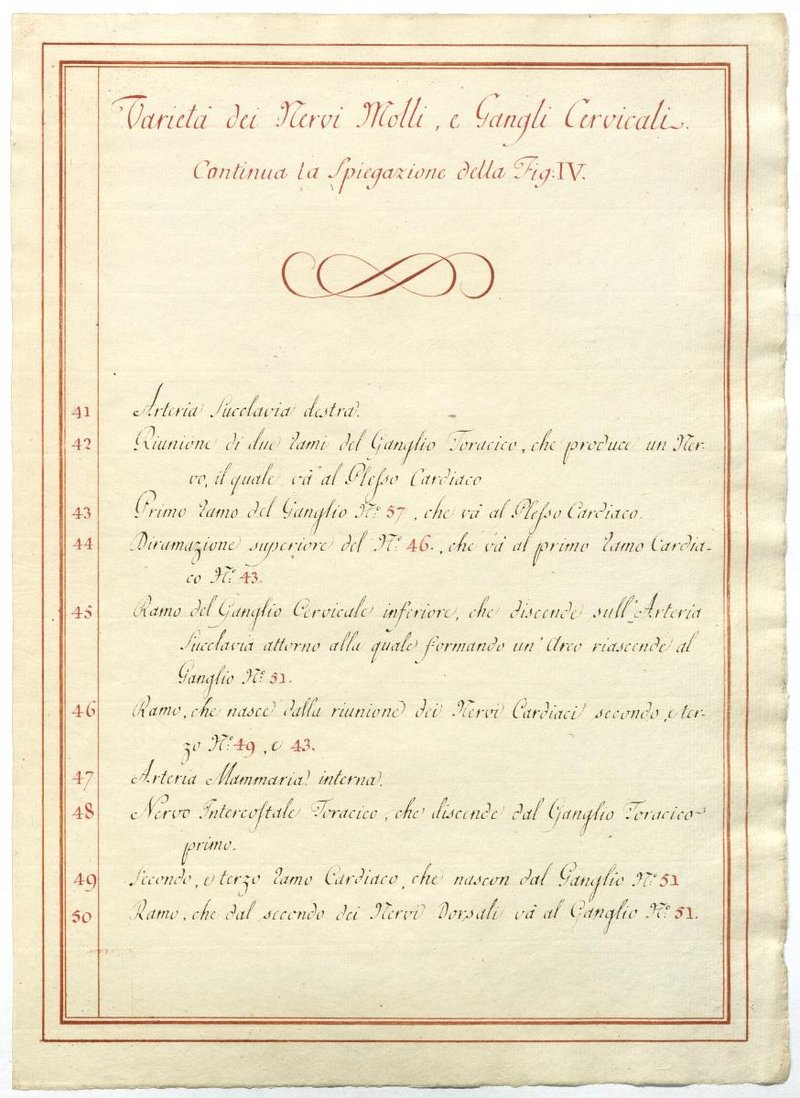 Varietá dei Nervi Molli, e Gangli Cervicali.
Continua la Spiegazione della Fig: IV.
41 Arteria Succlavia destra.
42 Riunione di due rami del Ganglio Toracico, che produce un Ner-
vo, il quale vá al Plesso Cardiaco
43 Primo ramo del Ganglio N.º 57, che vá al Plesso Cardiaco.
44 Diramazione superiore del N.º 46., che vá al primo ramo Cardia-
co N.º 43.
45 Ramo del Ganglio Cervicale inferiore, che discende sull'Arteria
Succlavia attorno alla quale formando un'Arco riascende al
Ganglio N.º 51.
46 Ramo, che nasce dalla riunione dei Nervi Cardiaci secondo, e ter-
zo N.º 49, e 43.
47 Arteria Mammaria interna.
48 Nervo Intercostale Toracico, che discende dal Ganglio Toracico
primo.
49 Secondo, e terzo ramo Cardiaco, che nascon dal Ganglio N.º 51
50 Ramo, che dal secondo dei Nervi Dorsali vá al Ganglio N.º 51.